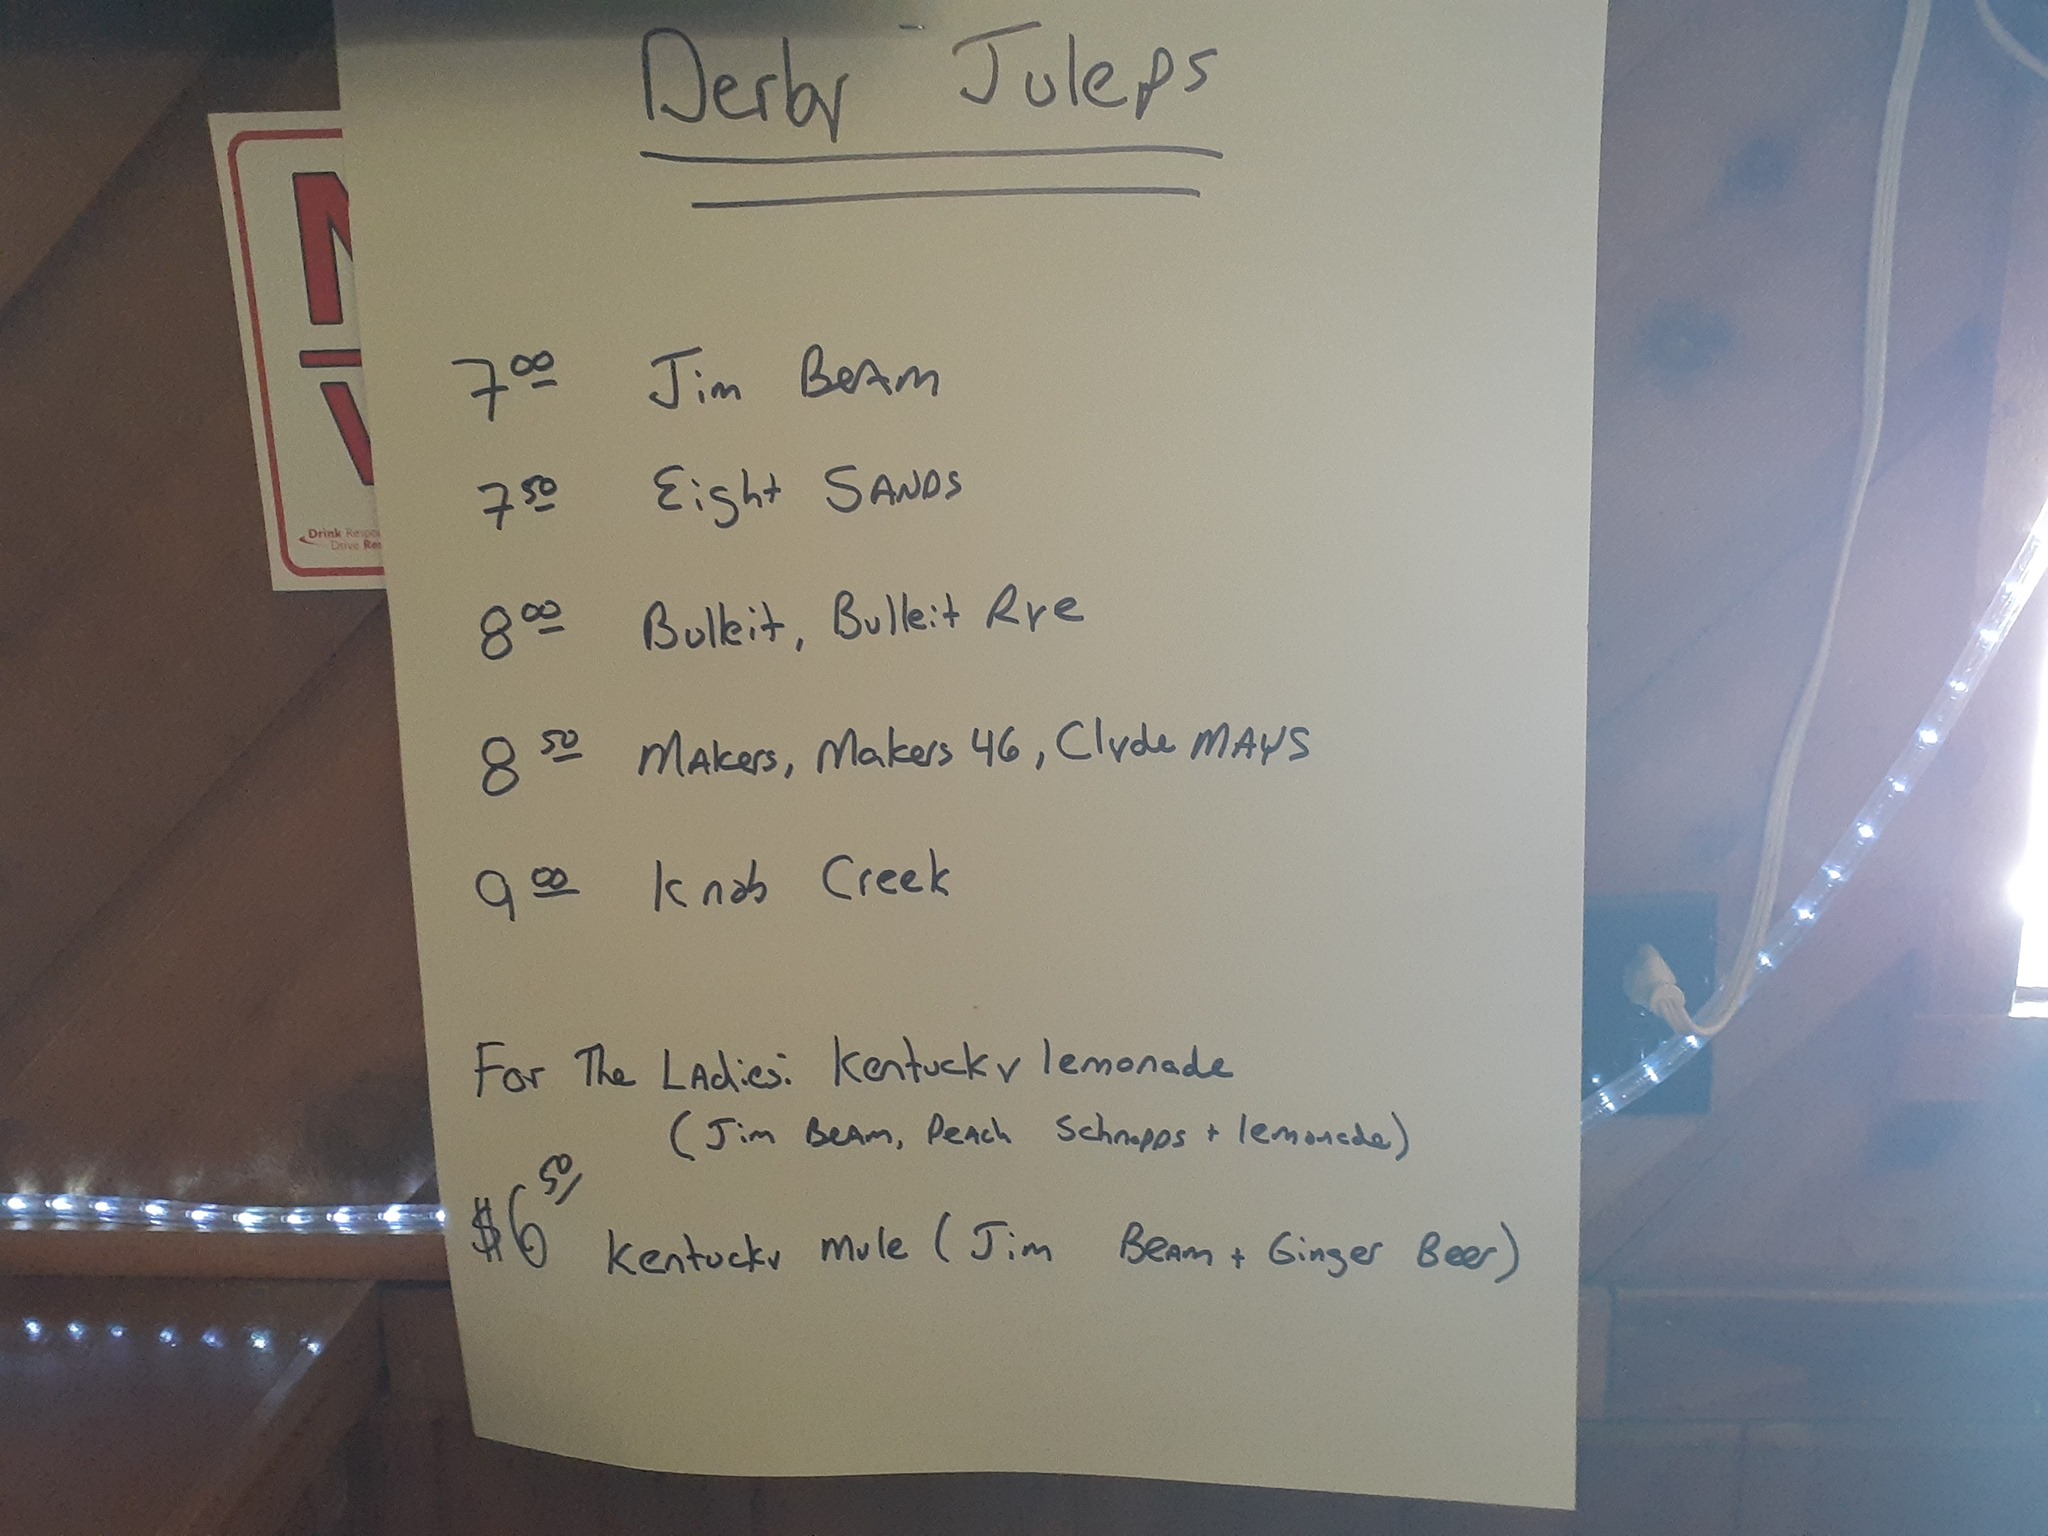 Derby Juleps
7 00 Jim Beam
7 50 Eight Sands
8 00 Bulleit, Bulleit Rye
8 50 Makers, Makers 46, Clyde Mays
9 00 Knob Creek
For The Ladies: Kentucky lemonade
(Jim Beam, Peach Schnapps + lemonade)
$6 50/
Kentucky mule (Jim Beam + Ginger Beer)
Drink
Drive